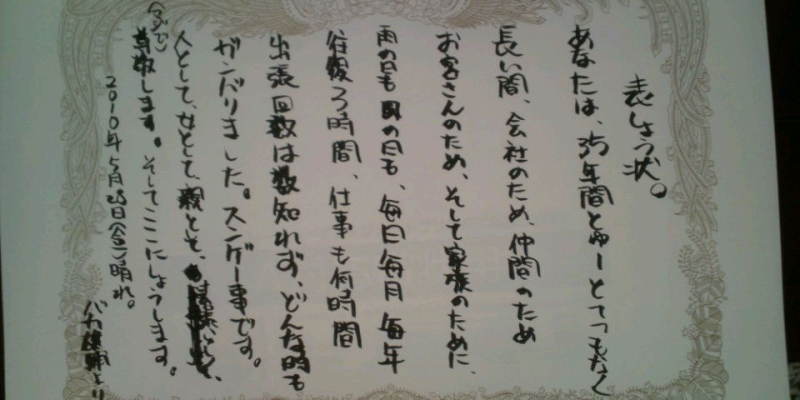 表しょう状。
あなたは、35年間とゆーとてつもなく
長い間、会社のため、仲間のため
お客さんのため、そして家族のために、
雨の日も風の日も、毎日毎月毎年
往復3時間、仕事も何時間
出張回数は数知れず、どんな時も
ガンバリました。スンゲー事です。
人として、女として、親とそ、
(マジで)
尊敬します。そしてここにしょうします。
2010年5月28日(金)晴れ。
バカ より